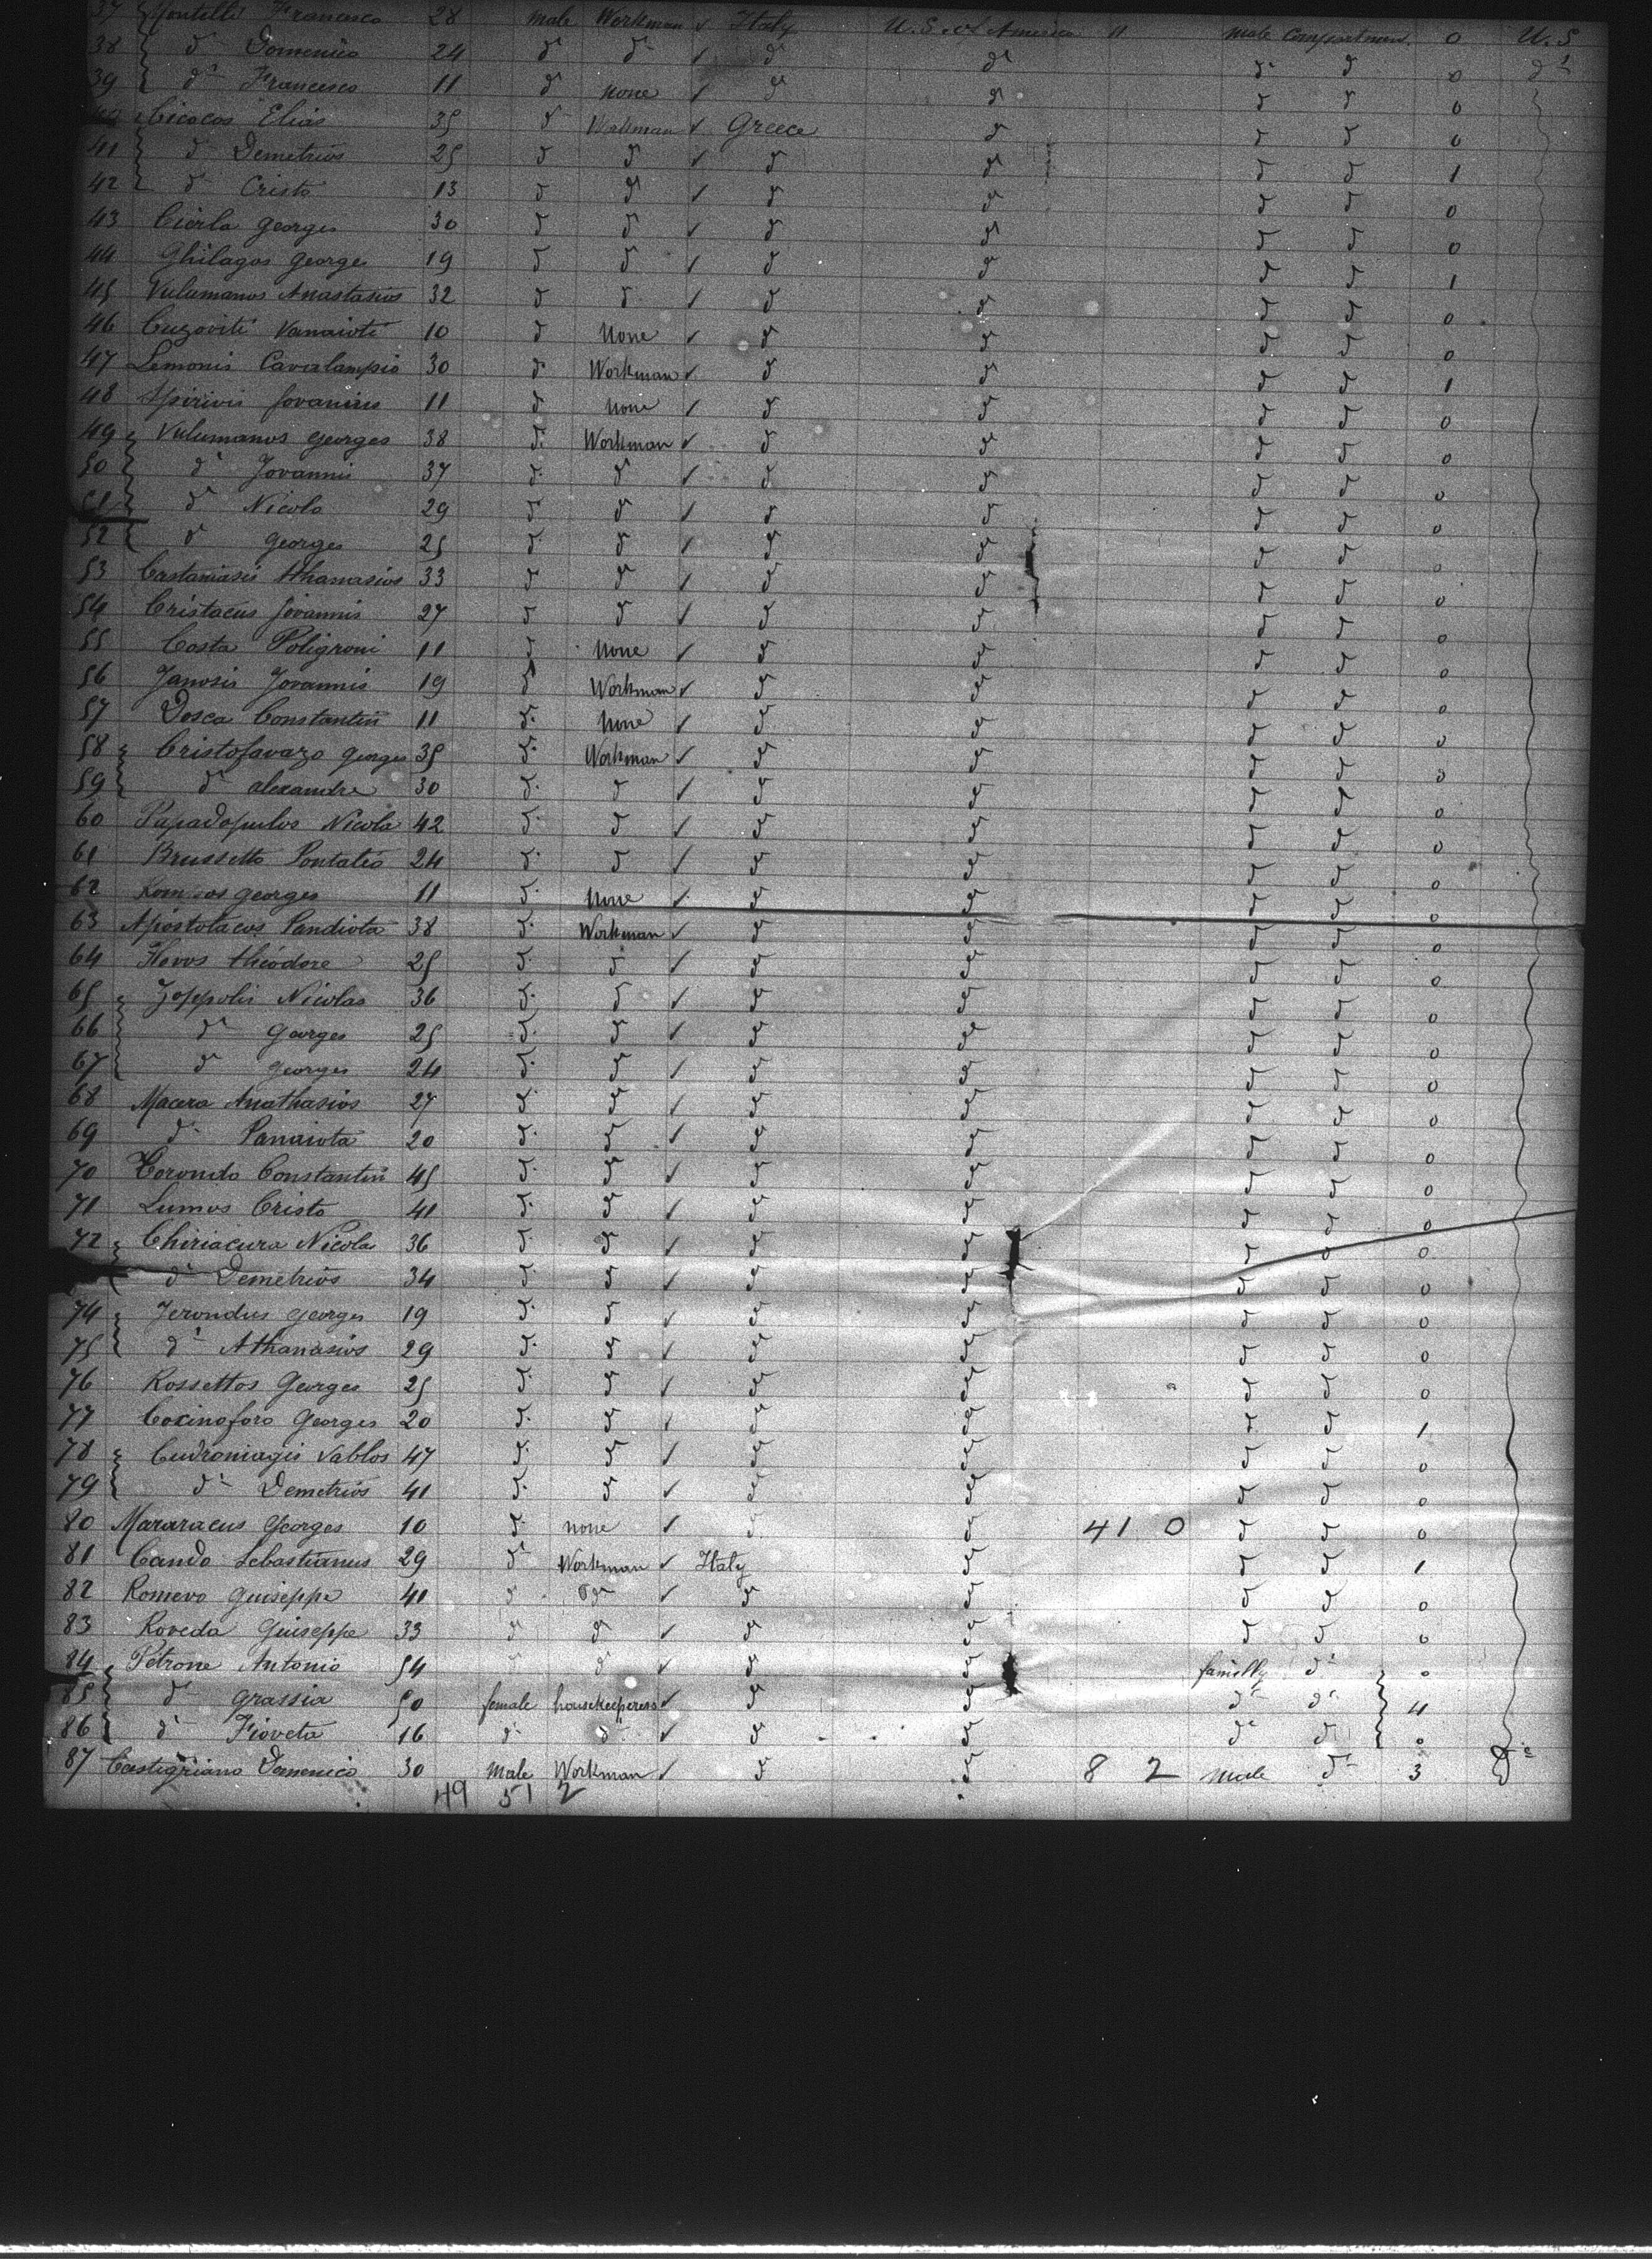 37 Montilli Francesco 28 male Workman ✓ Italy U.S. of America 11 male Compartment. 0 U.S
38 d° Domenico 24 d° d° ✓ d° d° d° d° 0 d°
39 d° Francesco 11 d° none ✓ d° d° d° d° 0
Cicocos Elias 35 d° Workman ✓ Greece d° d° d° 0
41 d° Demetrios 25 d° d° ✓ d° d° d° d° 1
42 d° Cristo 13 d° d° ✓ d° d° d° d° 0
43 Cierla georges 30 d° d° ✓ d° d° d° d° 0
44 Ghilagos george 19 d° d° ✓ d° d° d° d° 1
45 Vulumanos Anastasios 32 d° d° ✓ d° d° d° d° 0
46 Cuzoviti Vanaioti 10 d° None ✓ d° d° d° d° 0
47 Lemonis Cavralampio 30 d° Workman ✓ d° d° d° d° 1
48 Spirivis Jovanius 11 d° None ✓ d° d° d° d° 0
49 Vulumanos georges 38 d° Workman ✓ d° d° d° d° 0
50 d° Jovannis 37 d° d° ✓ d° d° d° d° 0
51 d° Nicola 29 d° d° ✓ d° d° d° d° 0
52 d° georges 25 d° d° ✓ d° d° d° d° 0
53 Castaniasis Athanasios 33 d° d° ✓ d° d° d° d° 0
54 Cristacus Jovannis 27 d° d° ✓ d° d° d° d° 0
55 Costa Poligroni 11 d° None ✓ d° d° d° d° 0
56 Janosis Jovannis 19 d° Workman ✓ d° d° d° d° 0
57 Dosca Constantin 11 d° None ✓ d° d° d° d° 0
58 Cristofavazo georges 35 d° Workman ✓ d° d° d° d° 0
59 d° alexandre 30 d° d° ✓ d° d° d° d° 0
60 Papadopulos Nicola 42 d° d° ✓ d° d° d° d° 0
61 Brussetto Pontatio 24 d° d° ✓ d° d° d° d° 0
62 georges 11 d° None ✓ d° d° d° d° 0
63 Apostolacus Pandiota 38 d° Workman ✓ d° d° d° d° 0
64 Flovos théodore 25 d° d° ✓ d° d° d° d° 0
65 Zoppolis Nicolas 36 d° d° ✓ d° d° d° d° 0
66 d° Georges 25 d° d° ✓ d° d° d° d° 0
67 d° georges 24 d° d° ✓ d° d° d° d° 0
68 Macera Anathasios 27 d° d° ✓ d° d° d° d° 0
69 d° Panaiota 20 d° d° ✓ d° d° d° d° 0
70 Coronito Constantin 45 d° d° ✓ d° d° d° d° 0
71 Lumos Cristo 41 d° d° ✓ d° d° d° d° 0
72 Chiriacura Nicola 36 d° d° ✓ d° d° d° d° 0
d° Demetrios 34 d° d° ✓ d° d° d° d° 0
74 Jerondus georges 19 d° d° ✓ d° d° d° d° 0
75 d° Athanasios 29 d° d° ✓ d° d° d° d° 0
76 Rossettos Georges 25 d° d° ✓ d° d° d° d° 0
77 Coxinoforo Georges 20 d° d° ✓ d° d° d° d° 1
78 Cudroniagis Vablos 47 d° d° ✓ d° d° d° d° 0
79 d° Demetrios 41 d° d° ✓ d° d° d° d° 0
80 Mararacus Georges 10 d° none ✓ d° d° 41 0 d° d° 0
81 Cando Sebastianus 29 d° Workman ✓ Italy d° d° d° 1
82 Romevo Guiseppe 41 d° d° ✓ d° d° d° d° 0
83 Roveda Guiseppe 33 d° d° ✓ d° d° d° d° 0
84 Petrone Antonio 54 d° d° ✓ d° d° familly d° 0
85 d° Grassia 50 female housekeeperess ✓ d° d° d° d° 4
86 d° Fioveta 16 d° d° ✓ d° d° d° d° 0
87 Castigriano Domenico 30 Male Workman ✓ d° d° 8 2 male d° 3 d°
49 51 2